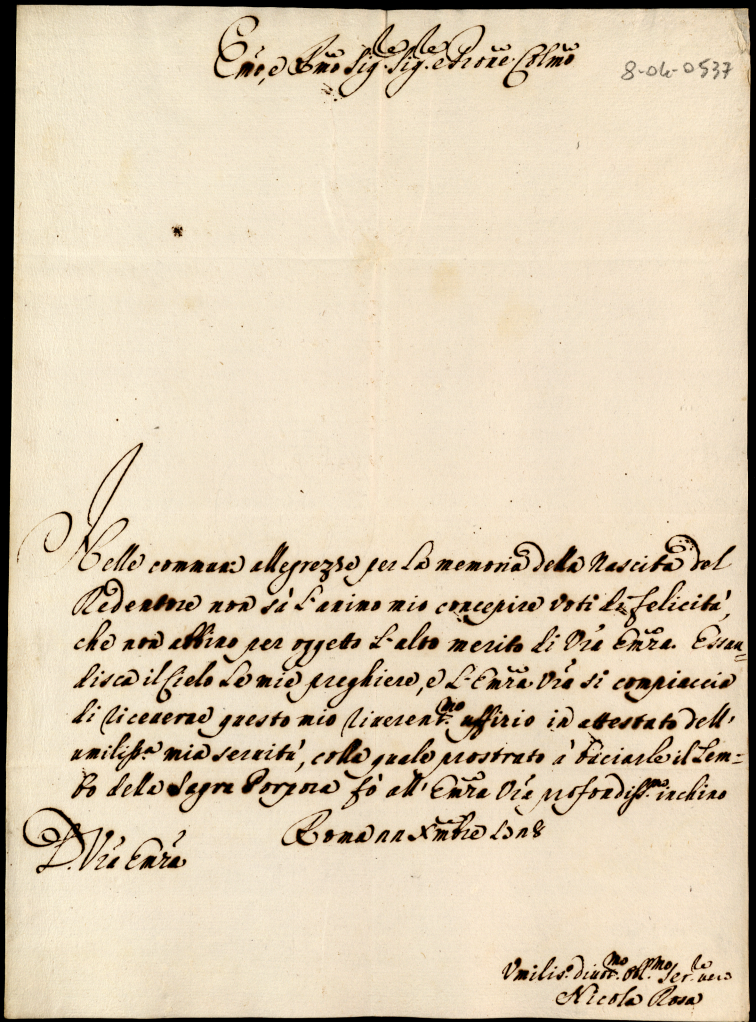 Emo, e Rmo Sig.re Sig.re e Prone Colmo
8-04-0537
Nelle communi allegrezze per la memoria della Nascità del
Redentore non sà l'animo mio concepire voti di felicità,
che non abbino per oggetto l'alto merito di Vra Emza. Essau=
disca il Cielo le mie preghiere, e l'Emza Vra si compiaccia
di ricevere questo mio riverent.mo uffizio in attestato dell'
umiliss.a mia servitù, colla quale prostrato à baciarle il Lem=
bo della Sagra Porpora fò all' Emza Vra profondiss.mo inchino
Roma Xmbre
D. Vra Emza
Umilis.o divot.mo Obl.mo Ser.re
Nicola Rosa